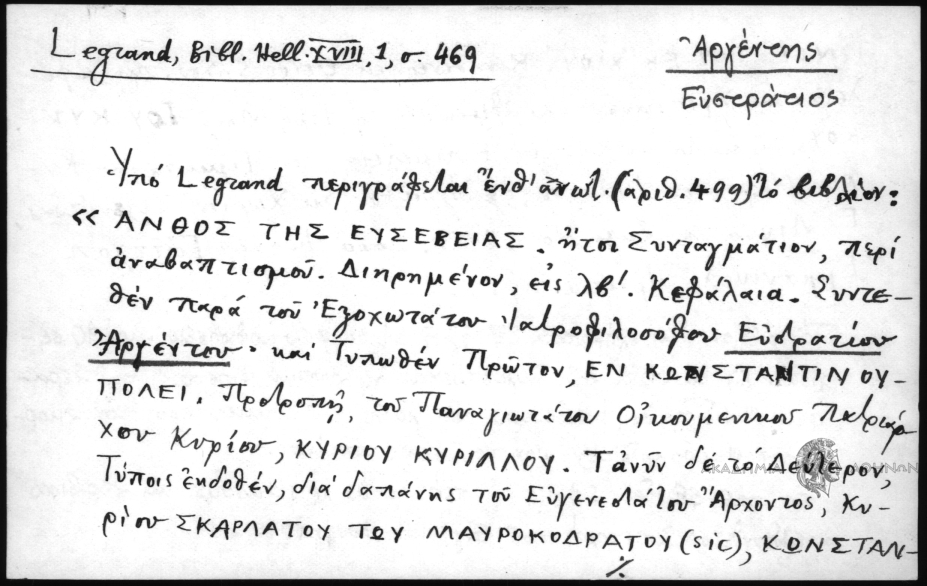 Legrand, Bibl. Hell. XVIII, 1, σ. 469
Ἀργέντης
Εὐστράτιος
Ὑπό Legrand περιγράφεται ἔνθ' ἀνωτ. (ἀριθ. 499) τό βιβλίον:
« ΑΝΘΟΣ ΤΗΣ ΕΥΣΕΒΕΙΑΣ. ἤτοι Συνταγμάτιον, περί
ἀναβαπτισμοῦ. Διῃρημένον, εἰς λβ'. Κεφάλαια. Συντε-
θέν παρά τοῦ Ἐξοχωτάτου Ἰατροφιλοσόφου Εὐστρατίου
Ἀργέντου· καί Τυπωθέν Πρῶτον, ΕΝ ΚΩΝΣΤΑΝΤΙΝΟΥ-
ΠΟΛΕΙ. Προτροπῇ, τοῦ Παναγιωτάτου Οἰκουμενικοῦ Πατριάρ
χου Κυρίου, ΚΥΡΙΟΥ ΚΥΡΙΛΛΟΥ. Τἀνῦν δέ τό Δεύτερον,
Τύποις ἐκδοθέν, διά δαπάνης τοῦ Εὐγενεστάτου Ἄρχοντος, Κυ-
ρίου ΣΚΑΡΛΑΤΟΥ ΤΟΥ ΜΑΥΡΟΚΟΔΡΑΤΟΥ (sic), ΚΩΝΣΤΑΝ-
./.
ΑΚΑΔΗΜΙΑ ΑΘΗΝΩΝ